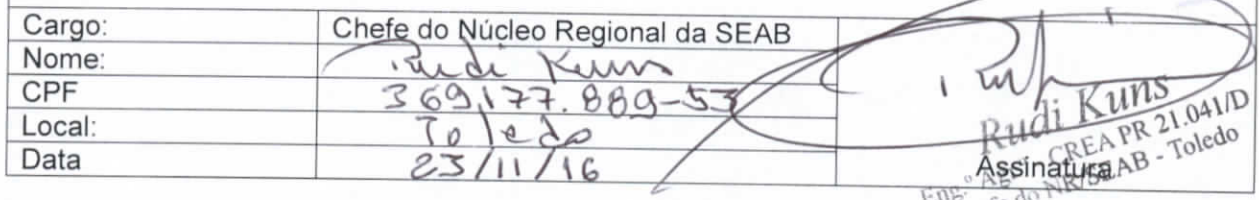 Cargo: Chefe do Núcleo Regional da SEAB
Nome: Rudi Kuns
CPF 369.177.889-53
Local: Toledo
Data 23/11/16
Rudi Kuns
Eng.º Agr. CREA PR 21.041/D
do NR/SEAB - Toledo
Assinatura